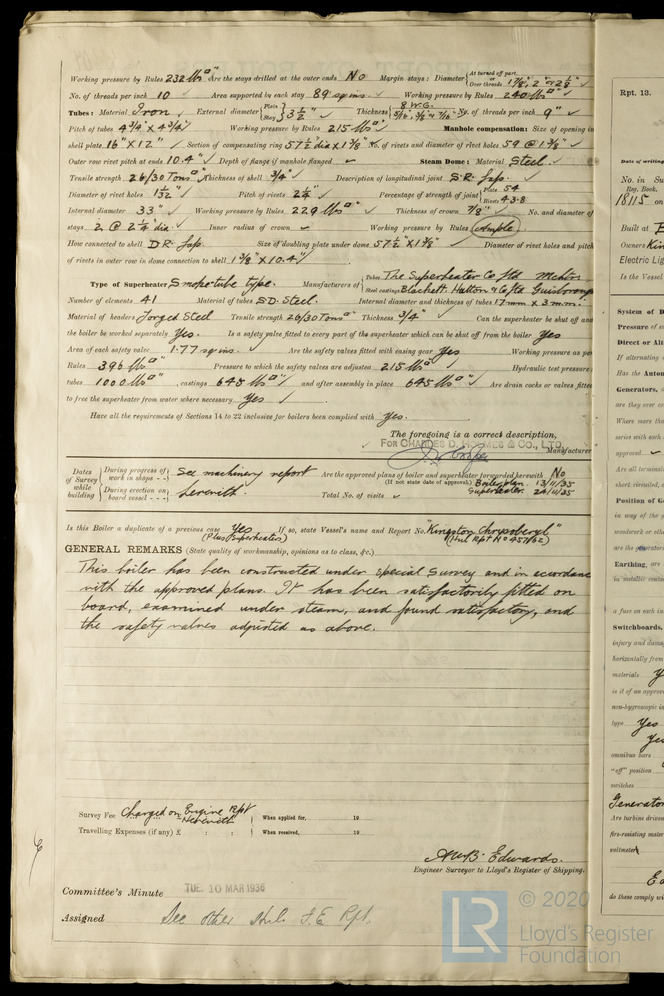 Working pressure by Rules 232 lbs□" Are the stays drilled at the outer ends No Margin stays: Diameter { At turned off part, or Over threads 1 7/8", 2" & 2 1/8"
No. of threads per inch 10 Area supported by each stay 89 sq ins. Working pressure by Rules 240 lbs□"
Tubes: Material Iron External diameter { Plain Stay } 3 1/2" Thickness { 8 W.G. 5/16", 3/8" & 7/16" No. of threads per inch 9"
Pitch of tubes 4 3/4" x 4 3/4" Working pressure by Rules 215 lbs□" Manhole compensation: Size of opening in
shell plate 16" x 12" Section of compensating ring 57 1/2" dia x 1 3/8" No. of rivets and diameter of rivet holes 59 @ 1 3/8"
Outer row rivet pitch at ends 10.4" Depth of flange if manhole flanged Steam Dome: Material Steel.
Tensile strength 26/30 Tons□" Thickness of shell 3/4" Description of longitudinal joint S.R. Lap.
Diameter of rivet holes 1 1/32" Pitch of rivets 2 1/4" Percentage of strength of joint { Plate 54 Rivets 43.8
Internal diameter 33" Working pressure by Rules 229 lbs□" Thickness of crown 7/8" No. and diameter of
stays 2 @ 2 1/4" dia. Inner radius of crown Working pressure by Rules (Ample)
How connected to shell D.R. Lap. Size of doubling plate under dome 57 1/2" x 1 3/8" Diameter of rivet holes and pitch
of rivets in outer row in dome connection to shell 1 3/8" x 10.4"
Type of Superheater Smoke-tube type. Manufacturers of { Tubes The Superheater Co Ltd Mchtr. Steel castings Blackett, Hutton & Co Ltd Guisborough
Number of elements 41 Material of tubes S.D. Steel. Internal diameter and thickness of tubes 17 mm x 3 mm.
Material of headers Forged Steel Tensile strength 26/30 Tons□" Thickness 3/4" Can the superheater be shut off and
the boiler be worked separately Yes. Is a safety valve fitted to every part of the superheater which can be shut off from the boiler Yes
Area of each safety valve 1.77 sq ins. Are the safety valves fitted with easing gear Yes Working pressure as per
Rules 396 lbs□" Pressure to which the safety valves are adjusted 215 lbs□" Hydraulic test pressure:
tubes 1000 lbs□", castings 645 lbs□" and after assembly in place 645 lbs□" Are drain cocks or valves fitted
to free the superheater from water where necessary Yes
Have all the requirements of Sections 14 to 22 inclusive for boilers been complied with Yes.
The foregoing is a correct description,
FOR CHARLES D. HOLMES & CO., LTD.
Manufacturer
Dates of Survey while building { During progress of work in shops - - See machinery report Are the approved plans of boiler and superheater forwarded herewith No
(If not state date of approval.) Boiler plan. 13/11/35
During erection on board vessel - - - herewith. Total No. of visits Superheater. 24/11/35
Is this Boiler a duplicate of a previous case Yes If so, state Vessel's name and Report No. "Kingston Chrysoberyl"
(Plus Superheater) (Hul Rpt No 45762)
GENERAL REMARKS (State quality of workmanship, opinions as to class, &c.)
This boiler has been constructed under special survey and in accordance
with the approved plans. It has been satisfactorily fitted on
board, examined under steam, and found satisfactory, and
the safety valves adjusted as above.
Survey Fee Charged on Engine Rpt Herewith When applied for, 19
Travelling Expenses (if any) £ : : When received, 19
Edwards.
Engineer Surveyor to Lloyd's Register of Shipping.
Committee's Minute TUE. 10 MAR 1936
Assigned See other Hul. F.E. Rpt.
Rpt. 13.
Date of writing
No. in
Reg. Book.
18115 on
Built at
Owners Kin
Electric Lig
Is the Vessel
System of D
Pressure of
Direct or Alt
If alternating
Has the Auto
Generators,
are they over
Where more tha
series with each
approved.
Are all terminals
short circuited,
Position of Ge
in way of the
woodwork or oth
are the generators
Earthing, are
in metallic conta
a fuse on each in
Switchboards,
injury and dama
horizontally from
materials
is it of an approved
non-hygroscopic
type Yes
Yes
omnibus bars
"off" position
switches
Generator
Are turbine driven
fire-resisting mater
voltmeter
do these comply wi
© 2020
LR
Lloyd's Register
Foundation